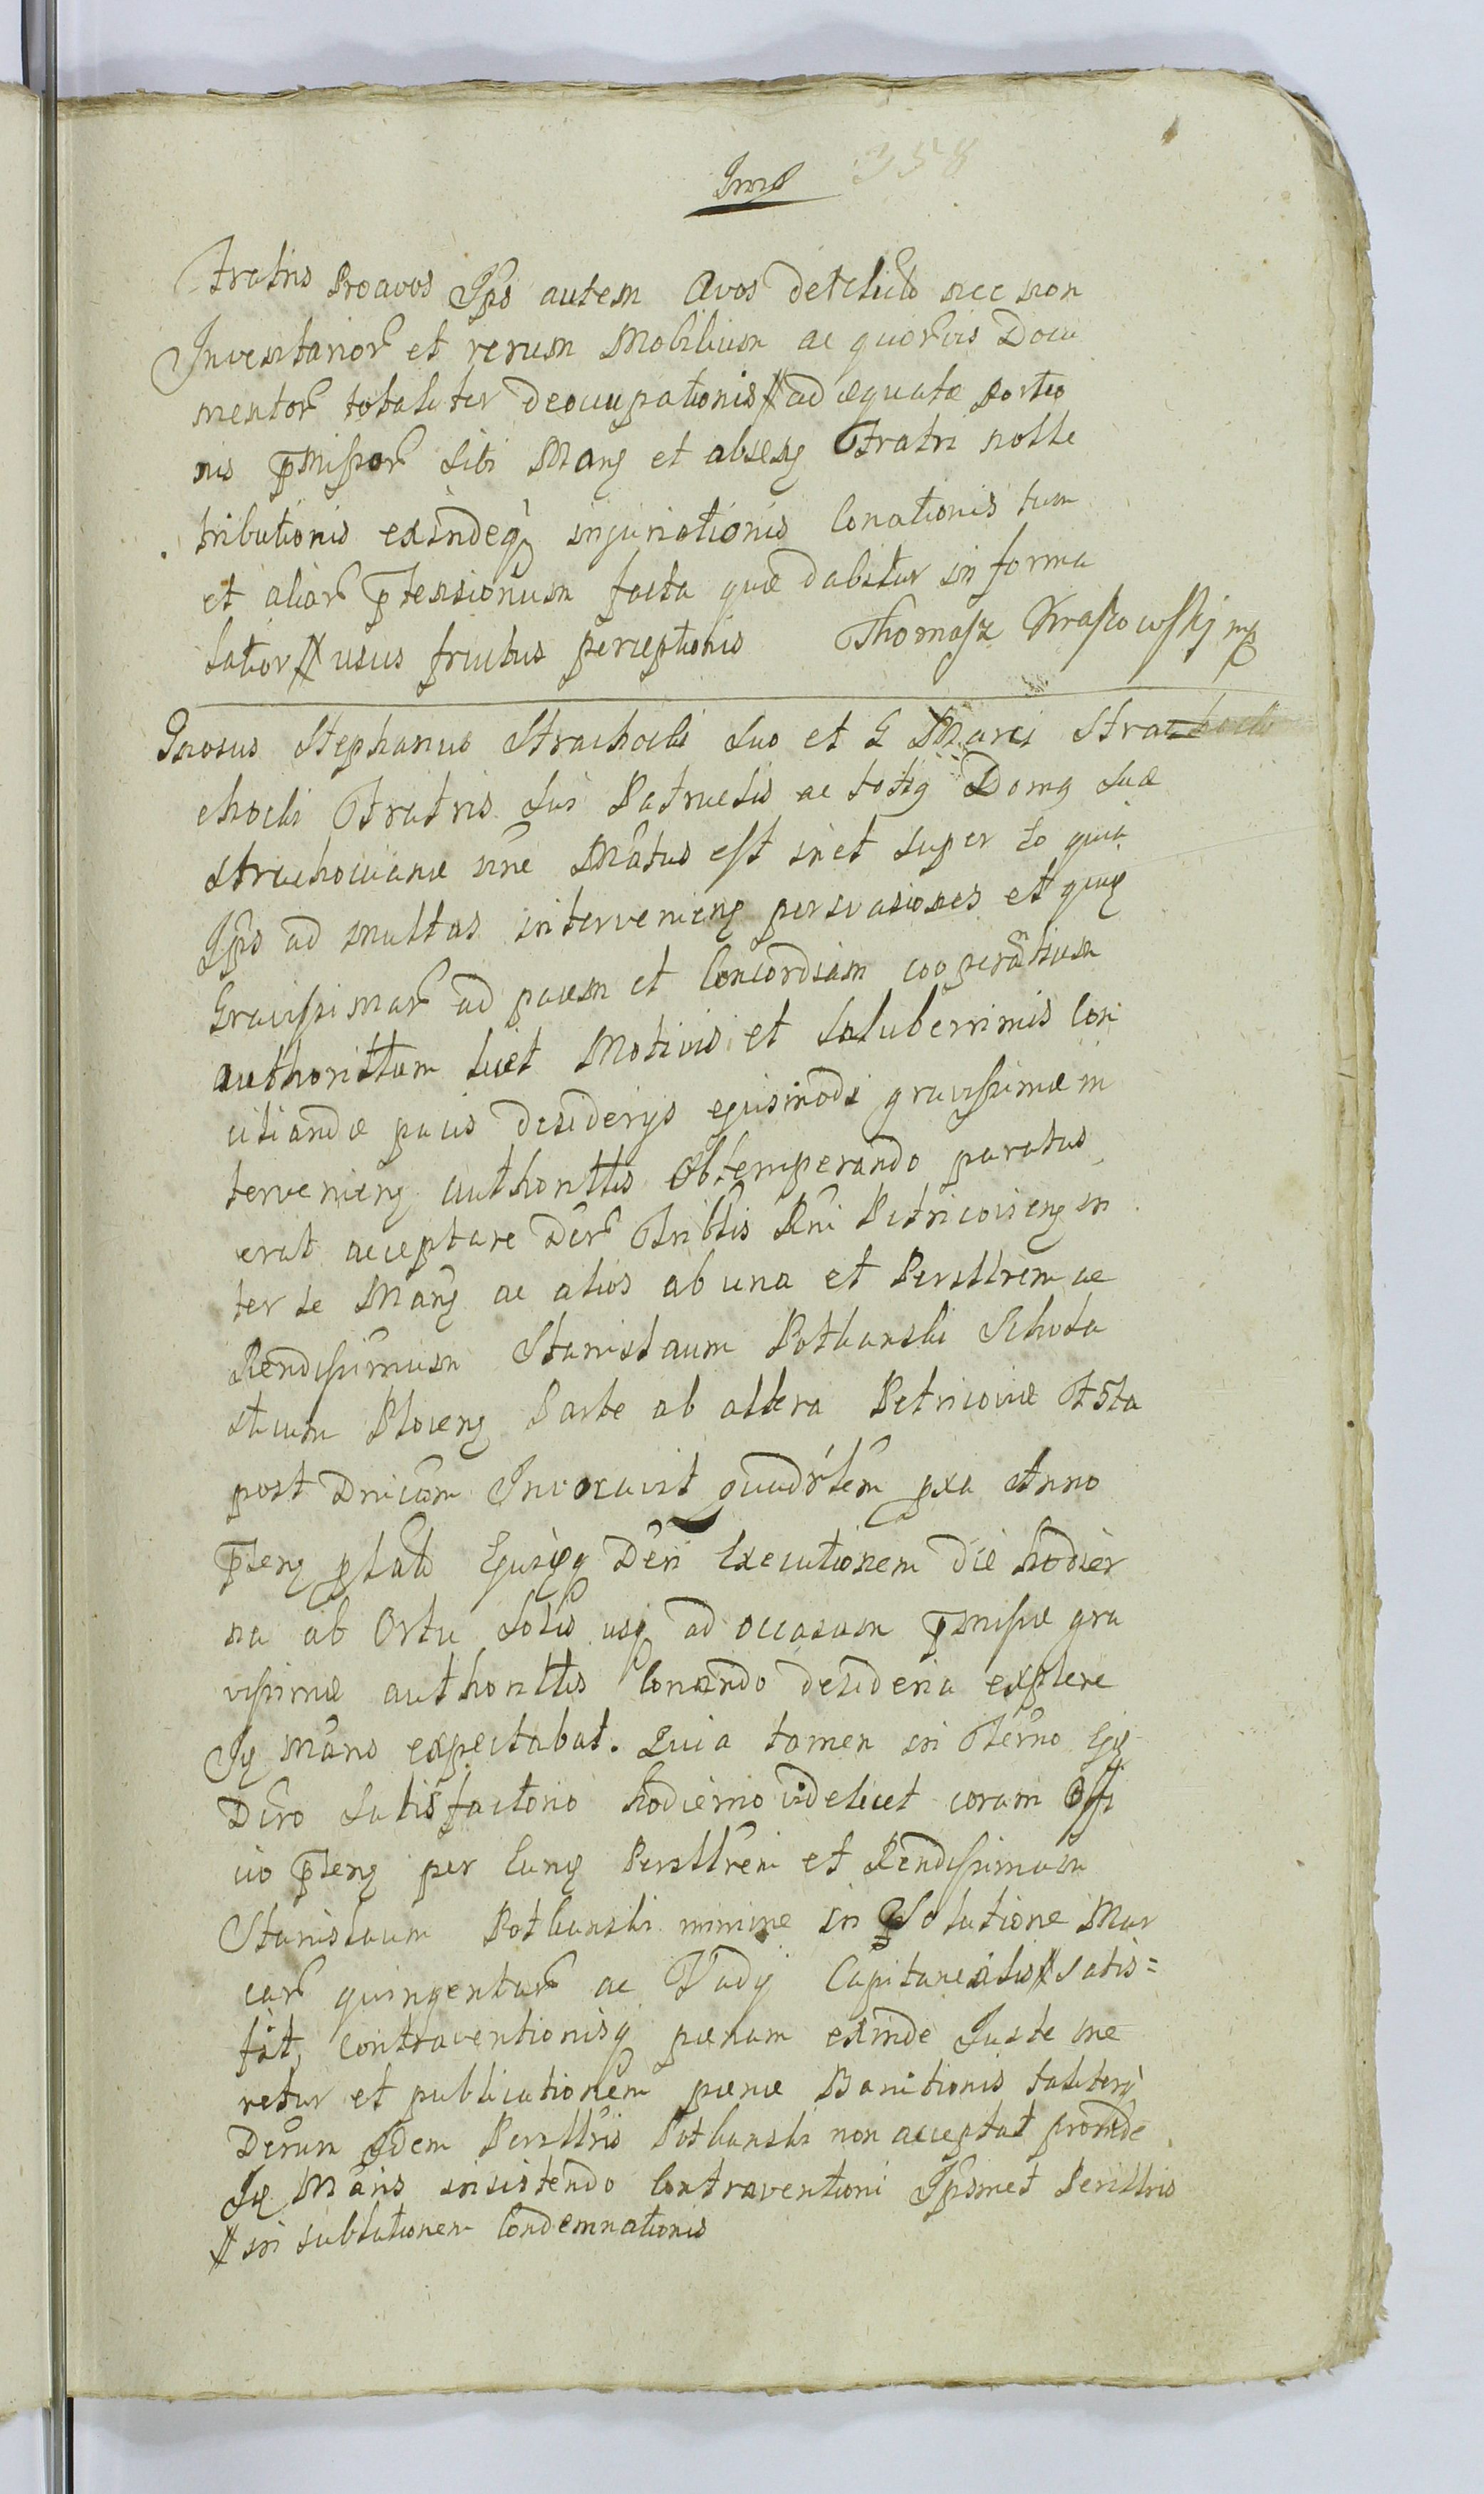 358
fratris Proavos Ipo autem Avos derelict nec non
Inventarior et rerum Mobilium ac quorvis Docu
mentor totaliter deoccupationis # ad æquatæ Portio
nis pmissor sibi Man et absen Fratri nolle
tributionis exindeq injuriationis Conationis tum
et alior ptensionum facta quæ dabitur in forma
latior # usus fructus perceptionis Thomasz mp
Gnosus Stephanus Strachocki suo et G Marci Stra
chocki Fratris sui Patruelis ac totiq Domq suæ
Strachocianæ nne Mãtus est iñet super eo quia
Ips ad multas intervenieng persvasiones et quq
Gravissimar ad pacem et Concordiam cooperãtium
authorittum licet Motivis et saluberrimis Con
ciliandæ pacis desiderijs ejusmodi gravissimæ in
tervenieng authorittis Obtemperando paratus
erat acceptare Decr Tribtis Rni Petricovieng in
ter se Mang ac alios ab una et Perilltrem ac
Rendissimum Stanislaum Pothanski Schola
sticum Ploceng Parte ab altera Petricoviæ fsta
post Dnicam Invocavit quadrlem pxa Anno
pteng plat Ejusq Decri Executionem die hodier
na ab Ortu Solis usq ad occasum pmissæ gra
vissimæ authorittis Conando desideria explere
Iq Mãns expectabat. Quia tamen in Termo Ejq
Decro satisfactorio hodierno videlicet coram Offi
cio pteng per Eunq Perilltrem et Rendissimum
Stanislaum Pothanski minime in psolutione Mar
car quingentar ac Vadij Capitanealis # satis=
fit, Contraventionisq pænam exinde Juste me
retur et publicationem pænæ Banitionis taliterq
Decrum Idem Perilltris Pothanski non acceptat proinde
Iq Mãns insistendo Contraventioni Ipsmet Perilltris
# in sublationem Condemnationis